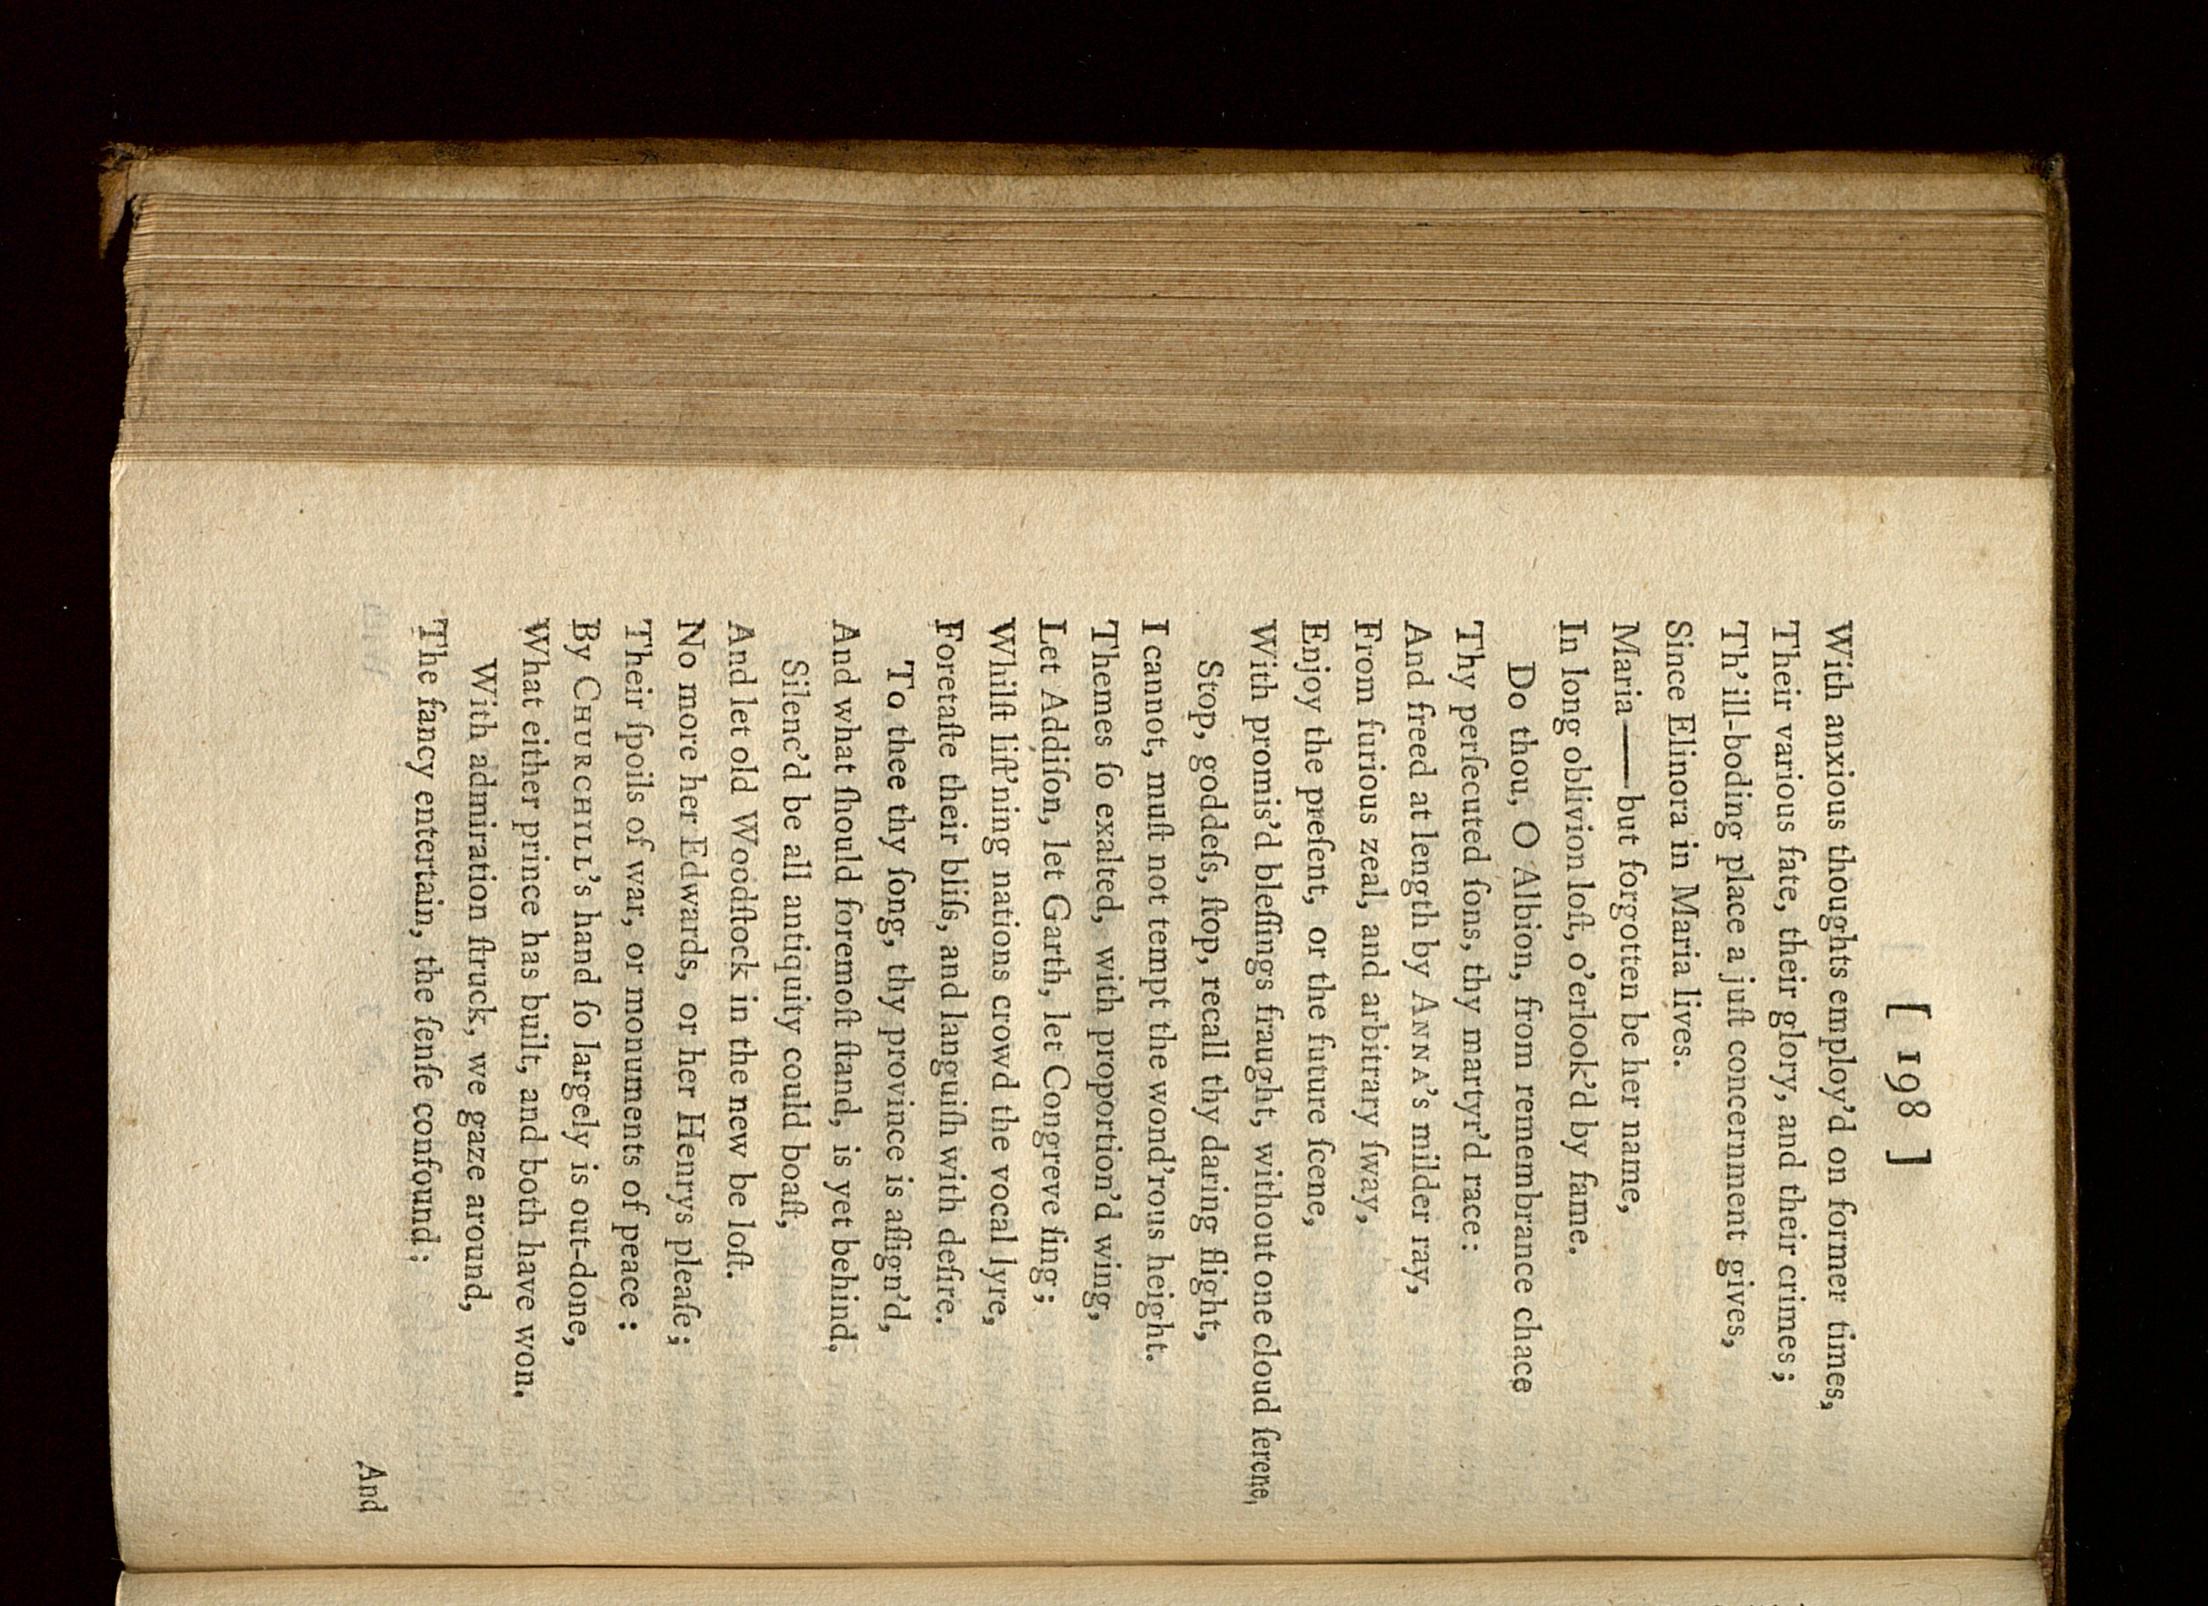 [ 198 ]
With anxious thoughts employ'd on former times,
Their various fate, their glory, and their crimes;
Th' ill-boding place a juſt concernment gives,
Since Elinora in Maria lives.
Maria——but forgotten be her name,
In long oblivion loſt, o'erlook'd by fame.
Do thou, O Albion, from remembrance chace
Thy perſecuted ſons, thy martyr'd race:
And freed at length by ANNA's milder ray,
From furious zeal, and arbitrary ſway,
Enjoy the preſent, or the future ſcene,
With promis'd bleſſings fraught, without one cloud ſerene,
Stop, goddeſs, ſtop, recall thy daring flight,
I cannot, muſt not tempt the wond'rous height.
Themes ſo exalted, with proportion'd wing,
Let Addiſon, let Garth, let Congreve ſing;
Whilſt liſt'ning nations crowd the vocal lyre,
Foretaſte their bliſs, and languiſh with deſire.
To thee thy ſong, thy province is aſſign'd,
And what ſhould foremoſt ſtand, is yet behind.
Silenc'd be all antiquity could boaſt,
And let old Woodſtock in the new be loſt.
No more her Edwards, or her Henrys pleaſe;
Their ſpoils of war, or monuments of peace:
By CHURCHILL's hand ſo largely is out-done,
What either prince has built, and both have won.
With admiration ſtruck, we gaze around,
The fancy entertain, the ſenſe confound;
And